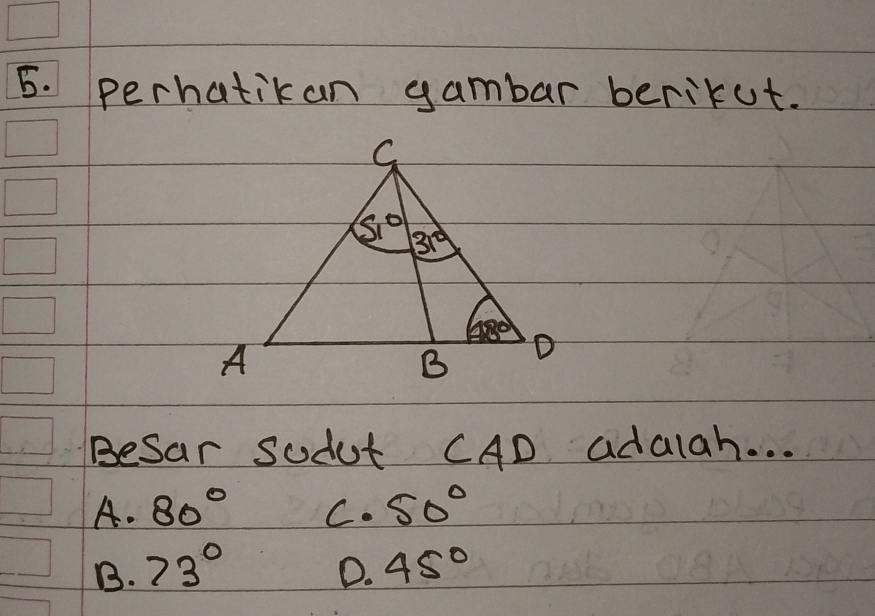 5. Perhatikan gambar berikut.
C
51° 31°
48°
A B D
Besar sudut CAD adalah...
A. 80° C. 50°
B. 73° D. 45°